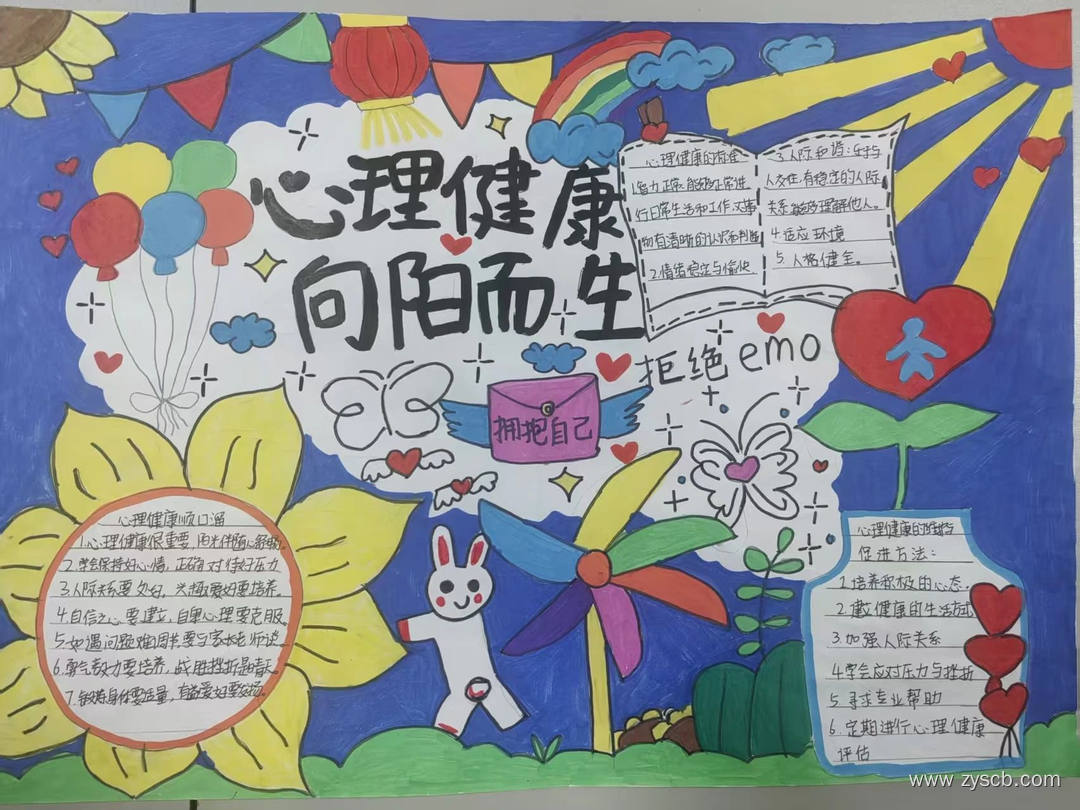 心理健康
向阳而生
拒绝emo
拥抱自己
心理健康的标准
1.智力正常:能够正常进
行日常生活和工作,对事
物有清晰的认识和判断
2.情绪稳定与愉快
3.人际和谐:乐于与
人交往,有稳定的人际
关系,能够理解他人。
4.适应环境
5.人格健全。
心理健康顺口溜
1.心理健康很重要,阳光伴随
2.学会保持好心情,正确对待好压力
3.人际关系要处好,兴趣爱好要培养
4.自信之心要建立,自卑心理要克服
5.如遇问题难困扰,要与家长老师谈
6.勇气毅力要培养,战胜挫折是晴天
7.锻炼身体要适量,有益爱好要发扬
心理健康的维护与
促进方法:
1.培养积极的心态.
2.建立健康的生活方式
3.加强人际关系
4.学会应对压力与挫折
5.寻求专业帮助
6.定期进行心理健康
评估
www.zyscb.com